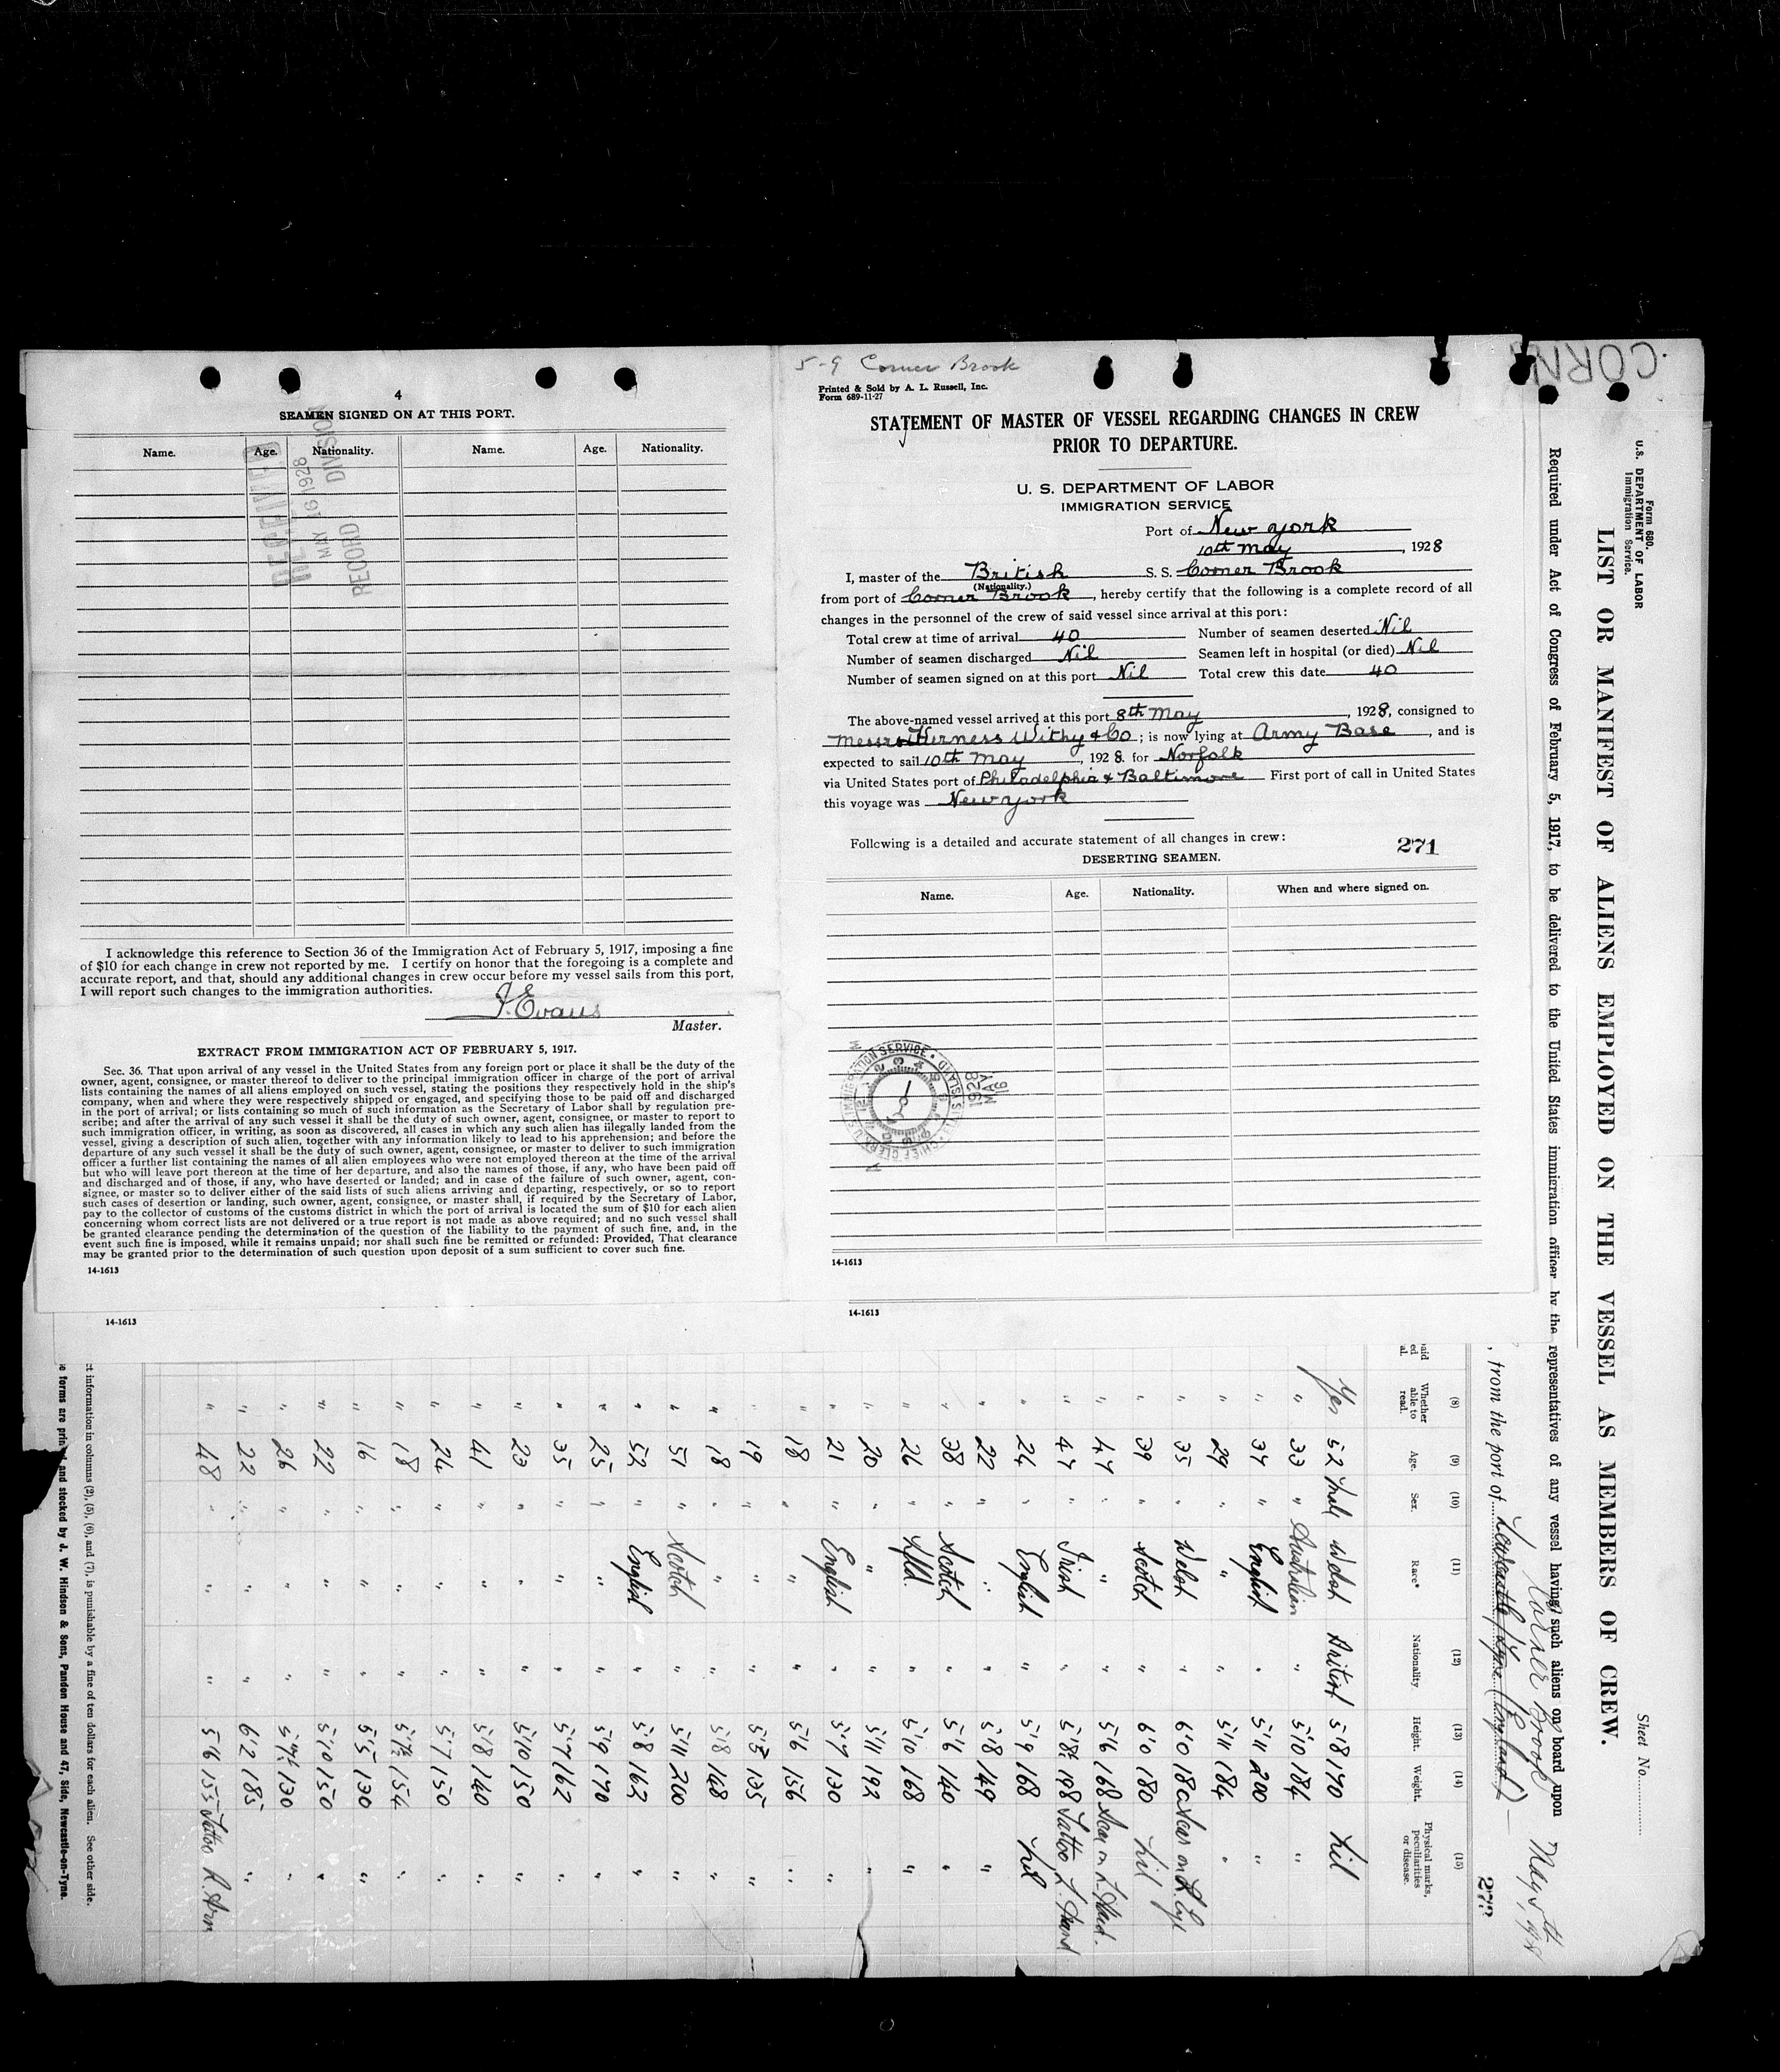 5-9 Corner Brook
Printed & Sold by A. L. Russell, Inc.
Form 689-11-27
STATEMENT OF MASTER OF VESSEL REGARDING CHANGES IN CREW
PRIOR TO DEPARTURE.
U. S. DEPARTMENT OF LABOR
IMMIGRATION SERVICE
Port of New York
10th May, 1928
I, master of the British S. S. Corner Brook
(Nationality.)
from port of Corner Brook, hereby certify that the following is a complete record of all
changes in the personnel of the crew of said vessel since arrival at this port:
Total crew at time of arrival 40 Number of seamen deserted Nil
Number of seamen discharged Nil Seamen left in hospital (or died) Nil
Number of seamen signed on at this port Nil Total crew this date 40
The above-named vessel arrived at this port 8th May, 1928, consigned to
Messrs Furness Withy & Co; is now lying at Army Base, and is
expected to sail 10th May, 1928 for Norfolk
via United States port of Philadelphia & Baltimore First port of call in United States
this voyage was New York
Following is a detailed and accurate statement of all changes in crew: 271
DESERTING SEAMEN.
Name. Age. Nationality. When and where signed on.
14-1613
14-1613
4
SEAMEN SIGNED ON AT THIS PORT.
Name. Age. Nationality. Name. Age. Nationality.
RECEIVED
MAY 16 1928
RECORD DIVISION
I acknowledge this reference to Section 36 of the Immigration Act of February 5, 1917, imposing a fine
of $10 for each change in crew not reported by me. I certify on honor that the foregoing is a complete and
accurate report, and that, should any additional changes in crew occur before my vessel sails from this port,
I will report such changes to the immigration authorities.
J. Evans
Master.
EXTRACT FROM IMMIGRATION ACT OF FEBRUARY 5, 1917.
Sec. 36. That upon arrival of any vessel in the United States from any foreign port or place it shall be the duty of the
owner, agent, consignee, or master thereof to deliver to the principal immigration officer in charge of the port of arrival
lists containing the names of all aliens employed on such vessel, stating the positions they respectively hold in the ship's
company, when and where they were respectively shipped or engaged, and specifying those to be paid off and discharged
in the port of arrival; or lists containing so much of such information as the Secretary of Labor shall by regulation pre-
scribe; and after the arrival of any such vessel it shall be the duty of such owner, agent, consignee, or master to report to
such immigration officer, in writing, as soon as discovered, all cases in which any such alien has illegally landed from the
vessel, giving a description of such alien, together with any information likely to lead to his apprehension; and before the
departure of any such vessel it shall be the duty of such owner, agent, consignee, or master to deliver to such immigration
officer a further list containing the names of all alien employees who were not employed thereon at the time of the arrival
but who will leave port thereon at the time of her departure, and also the names of those, if any, who have been paid off
and discharged and of those, if any, who have deserted or landed; and in case of the failure of such owner, agent, con-
signee, or master so to deliver either of the said lists of such aliens arriving and departing, respectively, or so to report
such cases of desertion or landing, such owner, agent, consignee, or master shall, if required by the Secretary of Labor,
pay to the collector of customs of the customs district in which the port of arrival is located the sum of $10 for each alien
concerning whom correct lists are not delivered or a true report is not made as above required; and no such vessel shall
be granted clearance pending the determination of the question of the liability to the payment of such fine, and, in the
event such fine is imposed, while it remains unpaid; nor shall such fine be remitted or refunded: Provided, That clearance
may be granted prior to the determination of such question upon deposit of a sum sufficient to cover such fine.
14-1613
14-1613
CORN
Form 680.
U.S. DEPARTMENT OF LABOR
Immigration Service.
Sheet No.
LIST OR MANIFEST OF ALIENS EMPLOYED ON THE VESSEL AS MEMBERS OF CREW.
Required under Act of Congress of February 5, 1917, to be delivered to the United States immigration officer by the representatives of any vessel having such aliens on board upon
Corner Brook May 5th
, from the port of Newcastle/Tyne (England) 272
(8) (9) (10) (11) (12) (13) (14) (15)
Whether able to read. Age. Sex. Race* Nationality Height. Weight. Physical marks, peculiarities or disease.
Yes 52 Male Welsh British 5'8 170 Nil
" 33 " Australian " 5'10 184 "
" 34 " English " 5'11 200 "
" 29 " " " 5'11 184 "
" 35 " Welsh " 6'0 180 Scar on L. Eye
" 39 " Scotch " 6'0 180 Nil
" 44 " " " 5'6 168 Scar on L. Hand.
" 47 " Irish " 5'8½ 198 Tattoo L. Hand
" 24 " English " 5'9 168 Nil
" 22 " " " 5'8 149 "
" 38 " Scotch " 5'6 140 "
" 26 " Nfld. " 5'10 168 "
" 20 " " " 5'11 192 "
" 21 " English " 5'7 130 "
" 18 " " " 5'6 156 "
" 19 " " " 5'5 135 "
" 18 " " " 5'8 148 "
" 57 " Scotch " 5'11 200 "
" 52 " English " 5'8 162 "
" 25 " " " 5'9 170 "
" 35 " " " 5'7 162 "
" 23 " " " 5'10 150 "
" 41 " " " 5'8 140 "
" 26 " " " 5'7 150 "
" 18 " " " 5'7½ 154 "
" 16 " " " 5'5 130 "
" 22 " " " 5'10 150 "
" 26 " " " 5'4½ 130 "
" 22 " " " 6'2 185 "
" 48 " " " 5'6 155 Tattoo R. Arm
ct information in columns (2), (5), (6), and (7), is punishable by a fine of ten dollars for each alien. See other side.
e forms are printed and stocked by J. W. Hindson & Sons, Pandon House and 47, Side, Newcastle-on-Tyne.